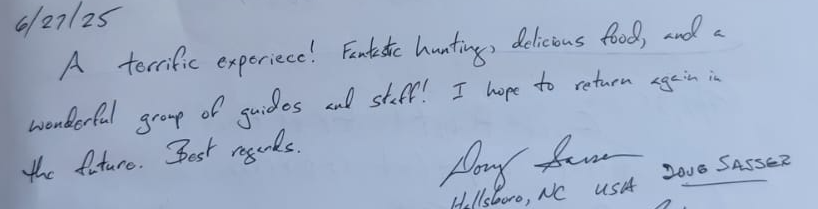 6/27/25
A terrific experiece! Fantastic hunting, delicious food, and a
wonderful group of guides and staff! I hope to return again in
the future. Best regards.
Doug Sasser DOUG SASSER
Hillsboro, NC USA